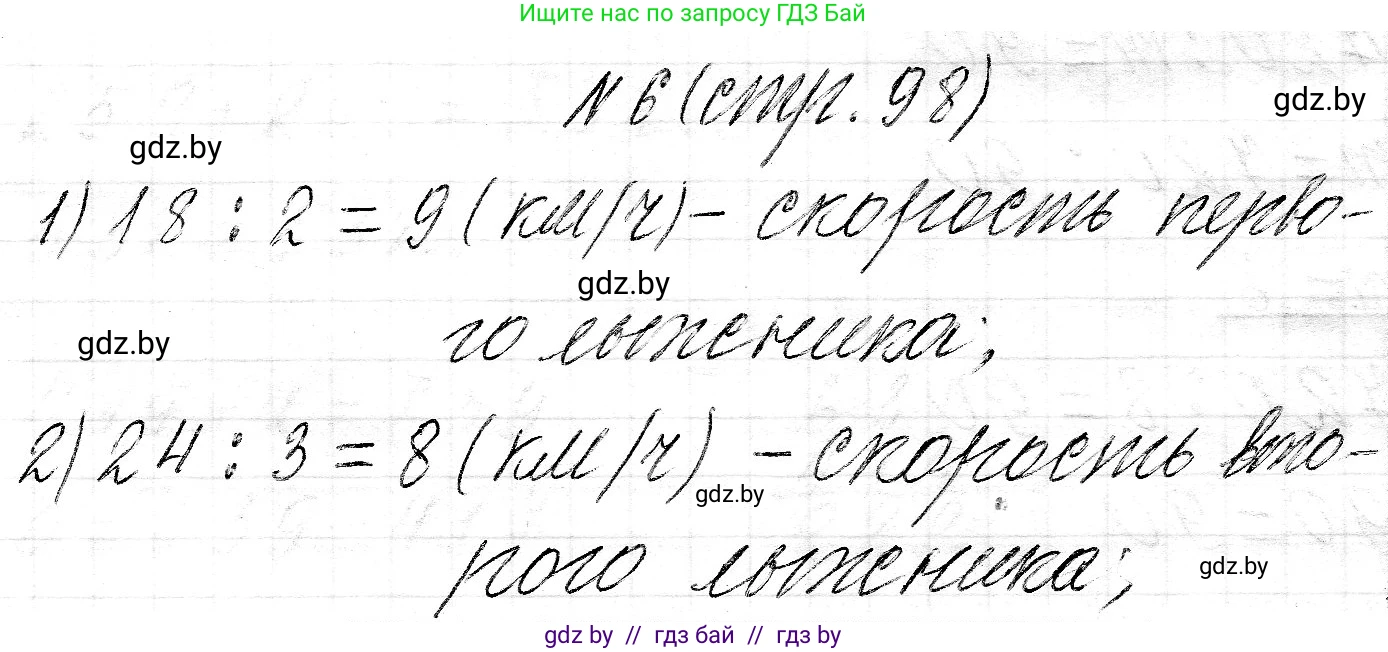 Ищите нас по запросу ГДЗ Бай
N 6 (стр. 98)
gdz.by
gdz.by
1) 18 : 2 = 9 (км/ч) - скорость перво-
gdz.by
го лыжника;
gdz.by
2) 24 : 3 = 8 (км/ч) - скорость вто-
gdz.by
рого лыжника;
gdz.by
gdz by // гдз бай // гдз by